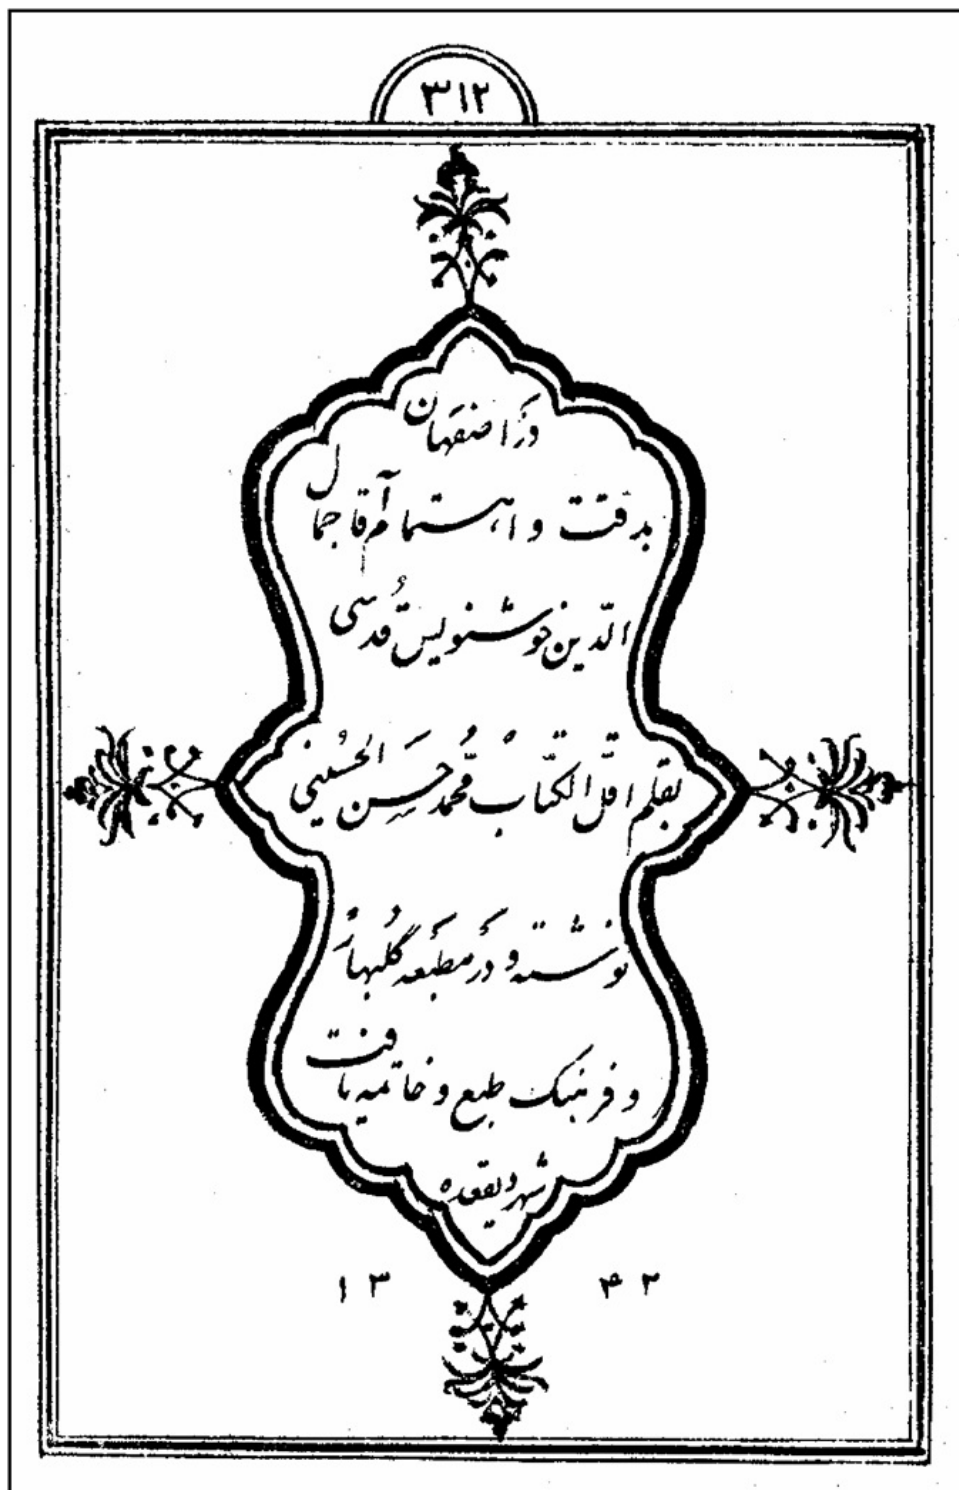 ۳۱۲
در اصفهان
بدقت و اهتمام آقا جمال
الدّین خوشنویس قُدسی
بقلم اقلّ الکتّاب محمّد حسن الحُسینی
نوشته و در مطبعه گلبهار
و فرهنک طبع و خاتمیه یافت
شهر ذیقعده
۱۳ ۴۲